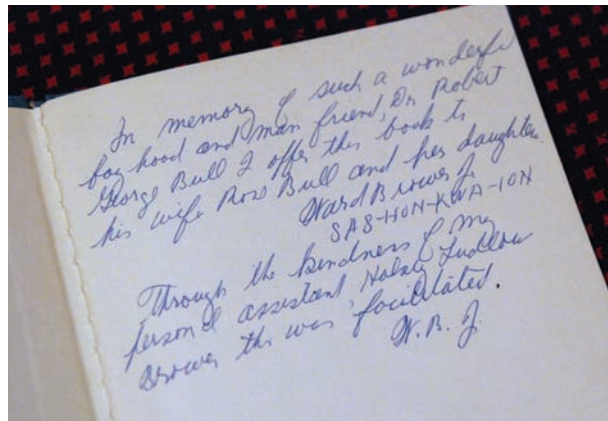 In memory of such a wonderfu
boyhood and man friend, Dr. Robert
George Bull I offer this book to
his wife Rose Bull and her daughter.
Ward Brower J.
SAS-HON-KWA-ION
Through the kindness of my
personal assistant, Ludlow
Brower this was facilitated.
W. B. J.